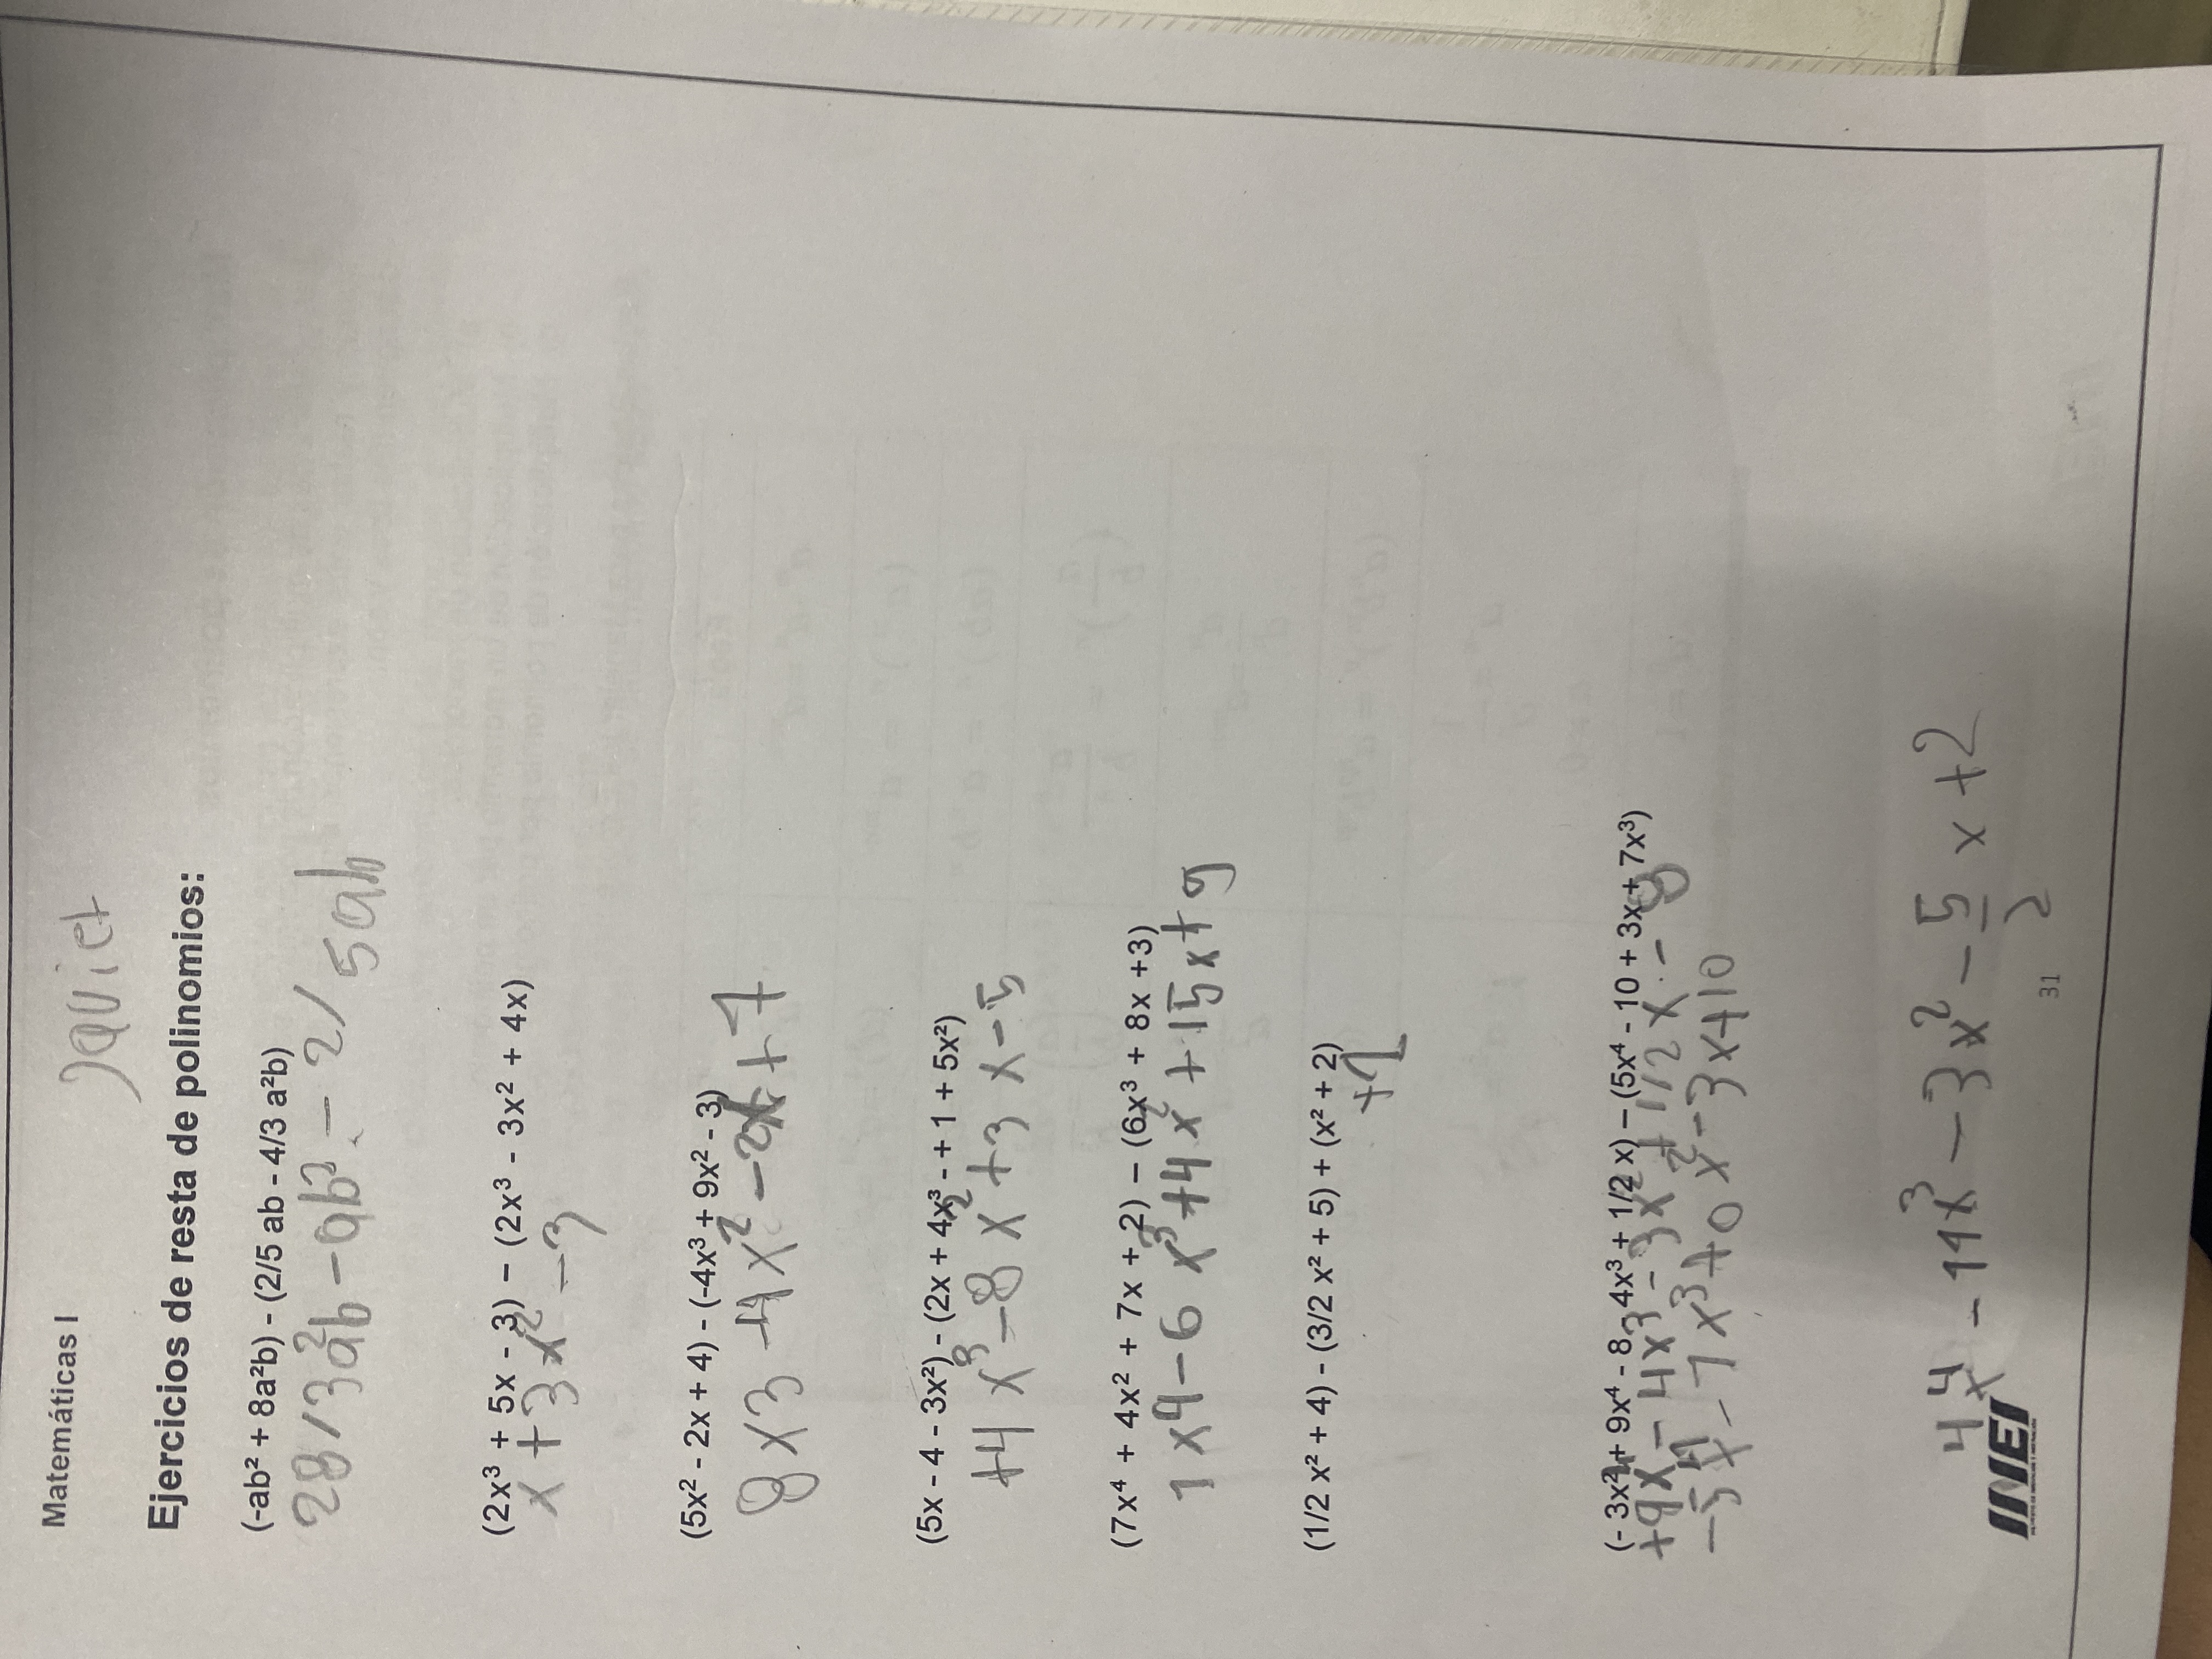 Matemáticas I
Javiet
Ejercicios de resta de polinomios:
(-ab² + 8a²b) - (2/5 ab - 4/3 a²b)
28/3a²b - ab² - 2/5ab
(2x³ + 5x - 3) – (2x³ - 3x² + 4x)
x + 3x² - 3
(5x² - 2x + 4) - (-4x³ + 9x² - 3)
8x3 - 4x² - 2x + 7
(5x - 4 - 3x²) - (2x + 4x³ - + 1 + 5x²)
+4x³ - 8x² + 3x - 5
(7x⁴ + 4x² + 7x + 2) – (6x³ + 8x +3)
7x4 - 6x³ + 4x² + 15x + 9
(1/2 x² + 4) - (3/2 x² + 5) + (x² + 2)
+1
(- 3x² + 9x⁴ - 8 - 4x³ + 1/2 x) – (5x⁴ - 10 + 3x + 7x³)
+9x⁴ - 4x3 - 3x² + 1/2x - 8
-5x⁴ - 7x³ + 0x² - 3x + 10
4x⁴ - 11x³ - 3x² - 5/2 x + 2
INEI
31